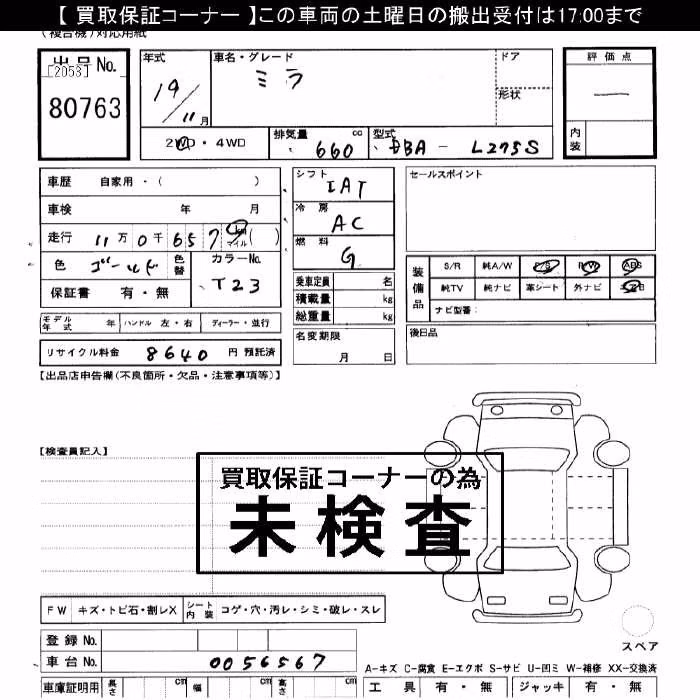 【 買取保証コーナー 】この車両の土曜日の搬出受付は17:00まで
(複合機)対応用紙
出品No.
[2053]
80763
年式 19/11月
車名・グレード ミラ
ドア
形状
評価点
内装
2WD・4WD
排気量 660 cc
型式 DBA - L275S
車歴 自家用・( )
車検 年 月
走行 11万0千657 km マイル ( )
色 ゴールド 色替
カラーNo. T23
保証書 有・無
モデル年式 年
ハンドル 左・右
ディーラー・並行
リサイクル料金 8640 円 預託済
シフト IAT
冷房 AC
燃料 G
乗車定員 名
積載量 kg
総重量 kg
名変期限 月 日
セールスポイント
装備品
S/R 純A/W P/S P/W ABS
純TV 純ナビ 革シート 外ナビ
ナビ型番:
後日品
【出品店申告欄(不良箇所・欠品・注意事項等)】
【検査員記入】
買取保証コーナーの為
未検査
FW キズ・トビ石・割レX
シート内装 コゲ・穴・汚レ・シミ・破レ・スレ
スペア
登録No.
車台No. 0056567
A-キズ C-腐食 E-エクボ S-サビ U-凹ミ W-補修 XX-交換済
車庫証明用 長さ cm 幅 cm 高さ cm
工具 有・無 ジャッキ 有・無